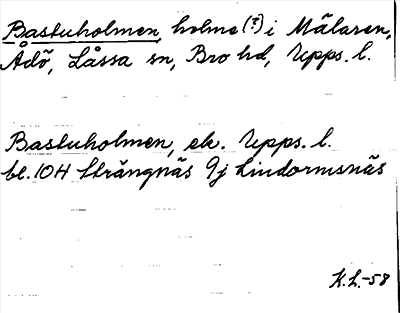 Bastuholmen, holme (?) i Mälaren,
Ådö, Låssa sn, Bro hd, Upps. l.
Bastuholmen, ek. Upps. l.
bl. 104 Strängnäs 9j Lindormsnäs
K.L.-58